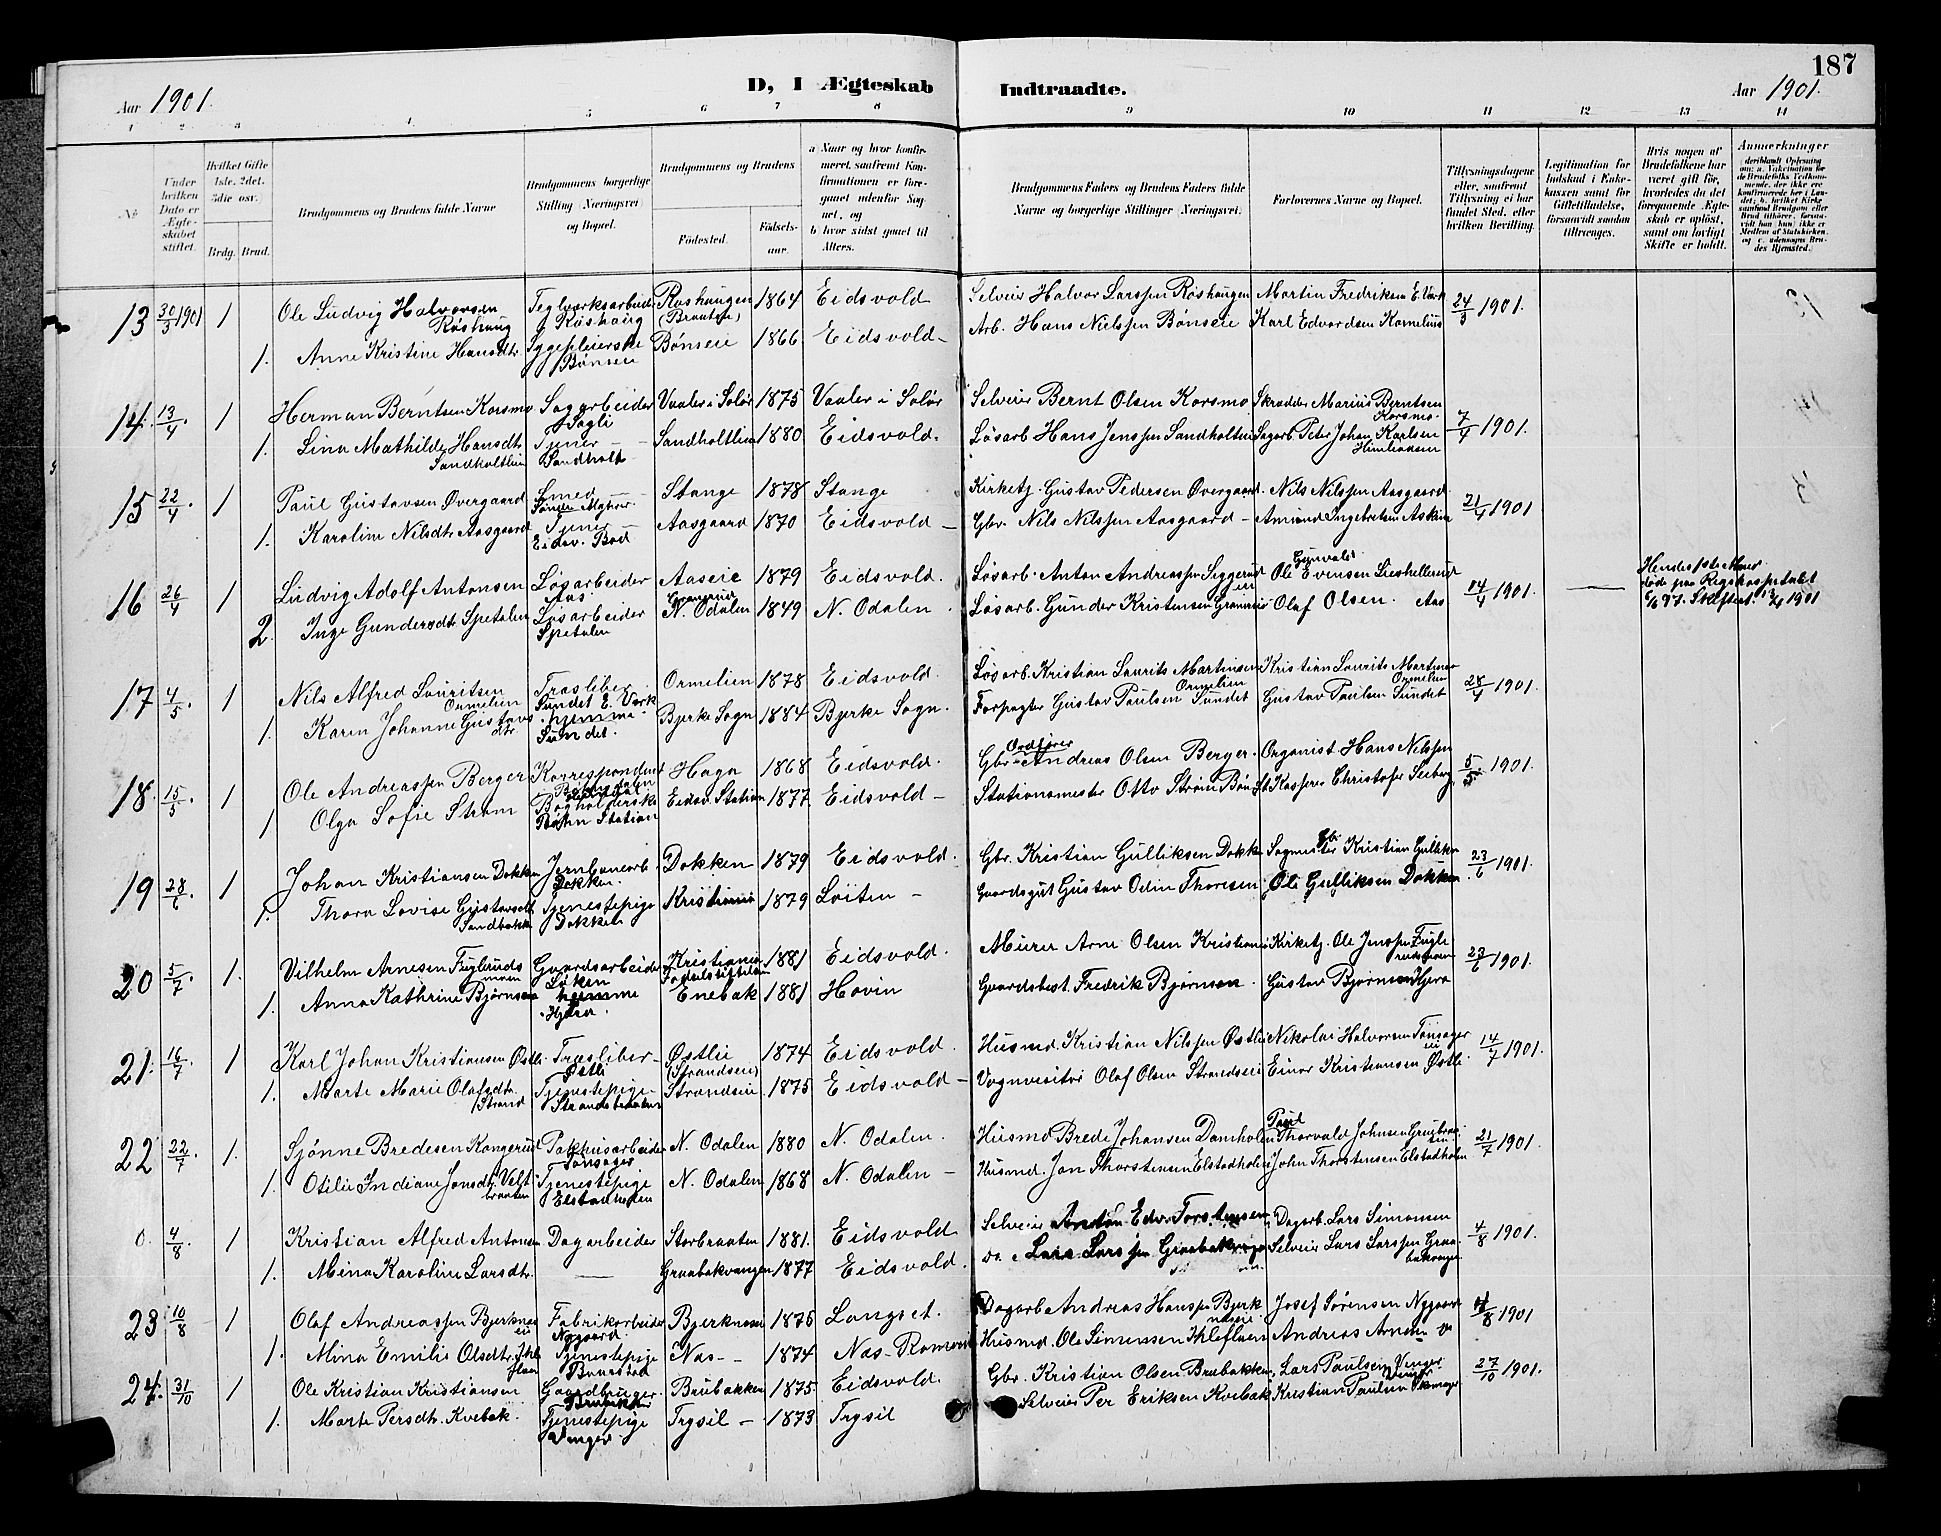 187
Aar 1901.
D, I Ægteskab Indtraadte.
Aar 1901.
1 2 3 4 5 6 7 8 9 10 11 12 13 14
№
Under hvilken Dato er Ægteskabet stiftet.
Hvilket Gifte 1ste, 2det, 3die osv.
Brdg. Brud.
Brudgommens og Brudens fulde Navne
Brudgommens borgerlige Stilling (Næringsvei) og Bopæl.
Brudgommens og Brudens
Fødested.
Fødselsaar.
a Naar og hvor konfirmeret, saafremt Konfirmationen er foregaaet udenfor Sognet, og
b hvor sidst gaaet til Alters.
Brudgommens Faders og Brudens Faders fulde Navne og borgerlige Stillinger (Næringsvei).
Forlovernes Navne og Bopæl.
Tillysningsdagene eller, saafremt Tillysning ei har fundet Sted, efter hvilken Bevilling.
Legitimation for Indskud i Enkekassen samt for Giftetilladelse, forsaavidt saadan tiltrænges.
Hvis nogen af Brudefolkene har været gift før, hvorledes da det foregaaende Ægteskab er opløst, samt om lovligt Skifte er holdt.
Anmærkninger
13 30/3 1901 1 Ole Ludvig Halvorsen Røshaug Teglverksarbeid. Røshaug Røshaugen (Braaten) 1864 Eidsvold Selveier Halvor Larssen Røshaugen Martin Fredriksen E. Verk 24/3 1901.
1. Anne Kristine Hansdtr. Sygepleierske Bønseie Bønseie 1866 Eidsvold Arb. Hans Nilssen Bønseie Karl Edvardsen Kornelius
14. 13/4. 1 Herman Berntsen Korsmo Sagarbeider Sagli Vaaler i Solør 1875 Vaaler i Solør Selveier Bernt Olsen Korsmo Skrædder Marius Berntsen Korsmo. 7/4 1901.
1. Lina Mathilde Hansdtr. Sandholtlien Tjener Sandholt Sandholtlien 1880 Eidsvold. Løsarb Hans Jenssen Sandholtlien Sagarb. Peter Johan Karlsen
15 22/4 1 Paul Gustavsen Øvergaard Smed Stange 1878 Stange Kirketj. Gustav Pedersen Øvergaard. Nils Nilssen Aasgaard 21/4 1901
1. Karoline Nilsdtr. Aasgaard Tjener Eidsv. Bad Aasgaard 1870 Eidsvold Gbr. Nils Nilssen Aasgaard Amund Ingebretsen
16 26/4 1 Ludvig Adolf Antonsen Løsarbeider Aas Aaseie 1879 Eidsvold. Løsarb. Anton Andreassen Seggerud Gunvald Ole Evensen 14/4 1901. Hendes 1ste Mand døde paa Rigshospitalet
2. Inge Gundersdtr. Spetalen Løsarbeider Spetalen N. Odalen 1849 N. Odalen Løsarb. Gunder Kristensen Olaf Olsen. Aas Skifteat. 1901
17 4/5 1 Nils Alfred Lauritsen Ormelien Træsliber Sundet E. Værk Ormelien 1878 Eidsvold. Løsarb. Kristian Laurits Martinsen Ormelien Kristian Laurits Martinsen Ormelien 28/4 1901.
1. Karen Johanne Gustavsdtr. hjemme Sundet. Bjerke Sogn 1884 Bjerke Sogn. Forpagter Gustav Paulsen Sundet Gustav Paulsen Sundet
18. 15/5. 1 Ole Andreassen Berger Korrespondent Haga 1868 Eidsvold. Gbr. Ordfører Andreas Olsen Berger. Organist Hans Nilssen 5/5. 1901.
1 Olga Sofie Strøm Bogholderske Bøhn Station Eidsv. Station 1877 Eidsvold Stationsmester Otto Strøm Bøn St. Kasserer Christofer Seeberg
19 28/6 1 Johan Kristiansen Dokken Jernbanearb. Dokken. Dokken 1879 Eidsvold. Gbr. Kristian Gulliksen Dokken Sagmester Kristian Gulliksen 23/6 1901.
1. Thora Lovise Gustavsdtr. Sandbakken Tjenestepige Dokken Kristiania 1879 Løiten Gaardsgut Gustav Odin Thoresen Ole Gulliksen Dokken.
20 5/7. 1. Vilhelm Arnesen Fuglerudsmoen Gaardsarbeider Løken Kristiania Fødselsstiftelsen 1881 Eidsvold. Murer Arne Olsen Kristiania Kirketj. Ole Jenssen Fuglerudsmoen 23/6 1901.
1. Anna Kathrine Bjørnsen hjemme Hjera. Enebak 1881 Hovin Gaardsbest. Fredrik Bjørnson. Gustav Bjørnson Hjera
21. 16/7 1 Karl Johan Kristiansen Østli Træsliber Østli Østlie (Strandseie) 1874 Eidsvold. Husmd. Kristian Nilssen Østlie Nikolai Halvorsen Tønsager 14/7 1901.
1. Marte Marie Olafsdtr. Strand Tjenestepige Strandsbraaten Strandseie 1875 Eidsvold Vognvisitør Olaf Olsen Strandseie Einar Kristiansen Østli
22 22/7 1. Sjønne Bredesen Kongerud Pakhusarbeider Tønsager N. Odalen 1880 N. Odalen. Husmd Brede Johansen Damholen Paul Thorvald Johnsen 21/7 1901.
1. Otilie Indiane Jonsdtr. Veltbraaten Tjenestepige Elstadholen N. Odalen 1868 N. Odalen Husmd. Jon Thorstensen Elstadholen John Thorstensen Elstadholen
0. 4/8. 1 Kristian Alfred Antonsen Dagarbeider Storbraaten 1881. Eidsvold Selveier Anton Edv. Torstensen Dagarb. Lars Simonsen 4/8 1901.
1. Mina Karoline Larsdtr. Graabakvangen 1877 Eidsvold. do. Lars Larssen Graabakvangen Selveier Lars Larssen Graabakvangen
23 10/8 1 Olaf Andreassen Bjerknæseie Fabrikarbeider Nygaard. Bjerknæseie 1875 Langset. Dagarb Andreas Hanssen Bjerknæseie Josef Sørensen Nygaard 4/8 1901
1. Mina Emilie Olsdtr. Ihleflaen Tjenestepige Næs 1874 Næs-Romerike Husmd. Ole Simensen Ihleflaen Andreas Arnesen
24. 31/10 1 Ole Kristian Kristiansen Gaardbruger. Brubakken Brubakken 1875. Eidsvold. Gbr. Kristian Olsen Brubakken, Lars Paulsen Venger. 27/10 1901.
1. Marte Persdtr. Kvebak. Tjenestepige Venger. Trysil 1873 Trysil Selveier Per Eriksen Kvebak Kristian Paulsen Venger